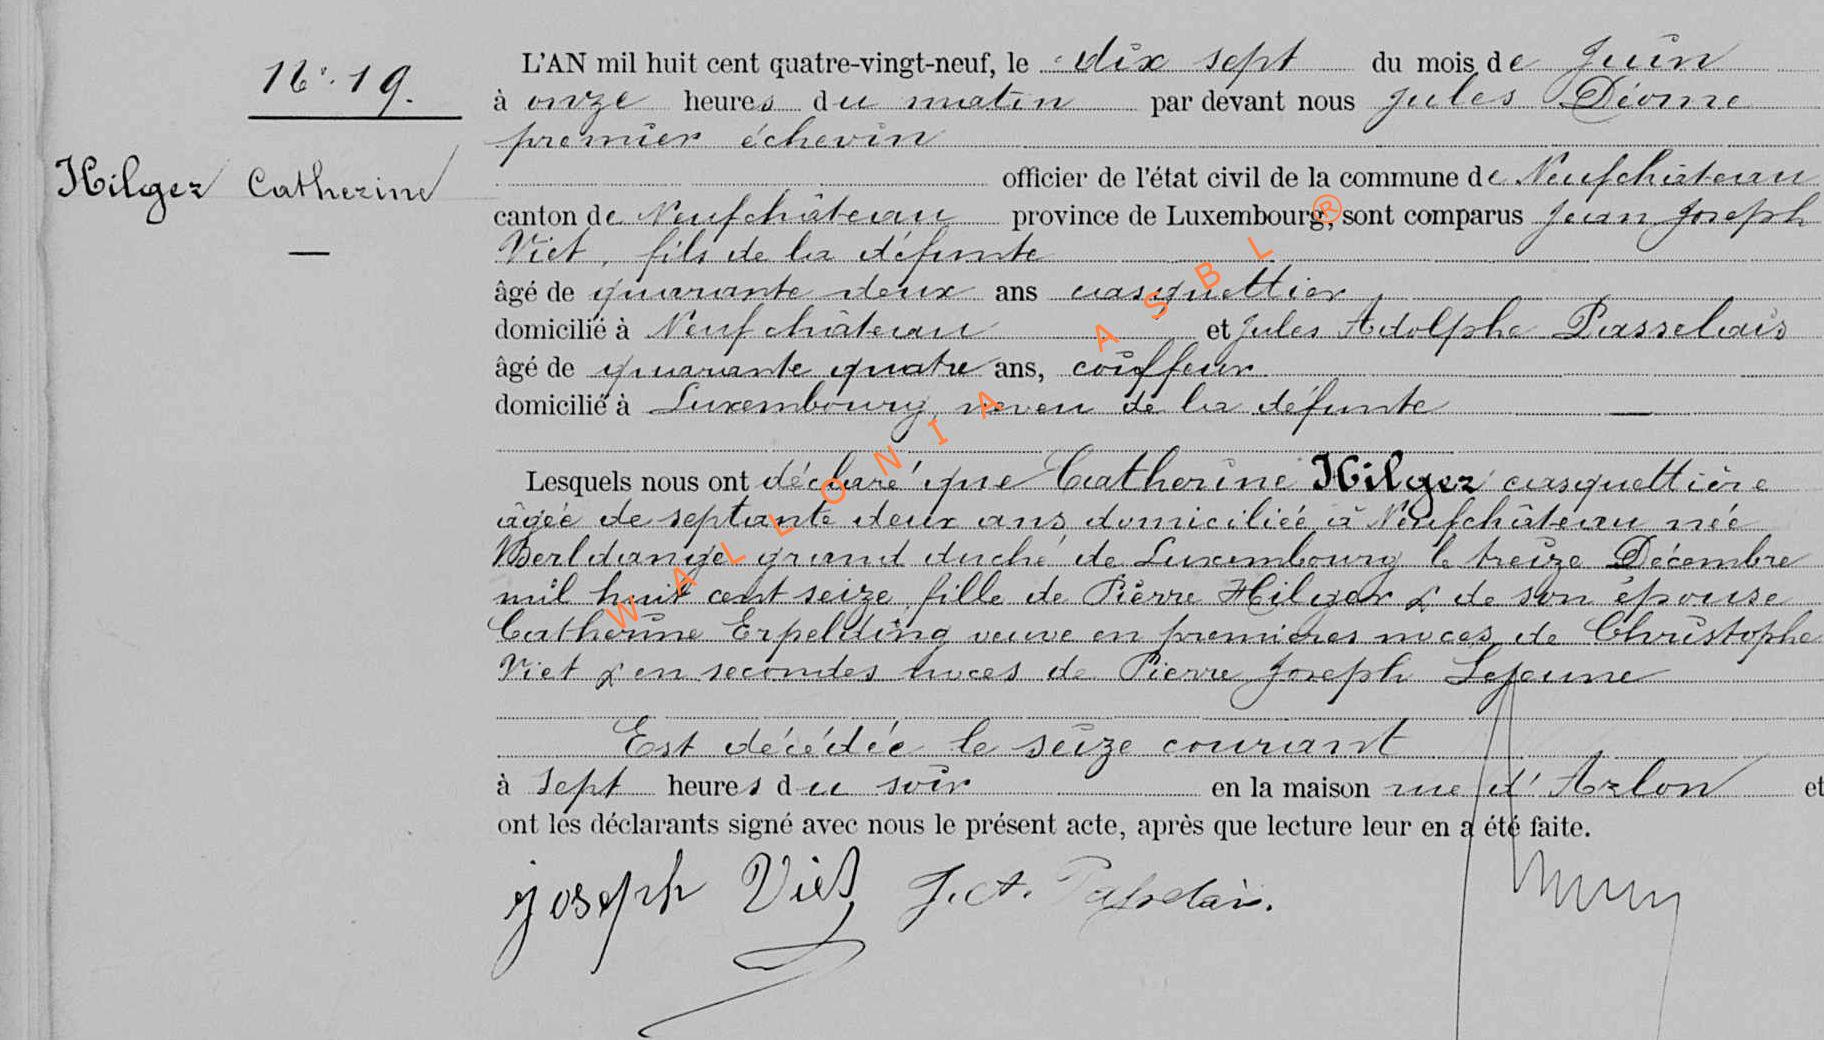 N° 19.
Hilger Catherine
L'AN mil huit cent quatre-vingt-neuf, le dix sept du mois de Juin
à onze heures du matin par devant nous Jules Déome
premier échevin
officier de l'état civil de la commune de Neufchâteau
canton de Neufchâteau province de Luxembourg, sont comparus Jean Joseph
Viet, fils de la défunte
âgé de quarante deux ans casquettier
domicilié à Neufchâteau et Jules Adolphe Passelais
âgé de quarante quatre ans, coiffeur
domicilié à Luxembourg, neveu de la défunte
Lesquels nous ont déclaré que Catherine Hilger casquettière
âgée de septante deux ans, domiciliée à Neufchâteau née
Berldange grand duché de Luxembourg le treize Décembre
mil huit cent seize, fille de Pierre Hilger & de son épouse
Catherine Erpelding veuve en premières noces de Christophe
Viet & en secondes noces de Pierre Joseph Lejeune
Est décédée le seize courant
à sept heures du soir en la maison rue d'Arlon et
ont les déclarants signé avec nous le présent acte, après que lecture leur en a été faite.
joseph Viet J. A. Passelais.
WALLONIA ASBL ®